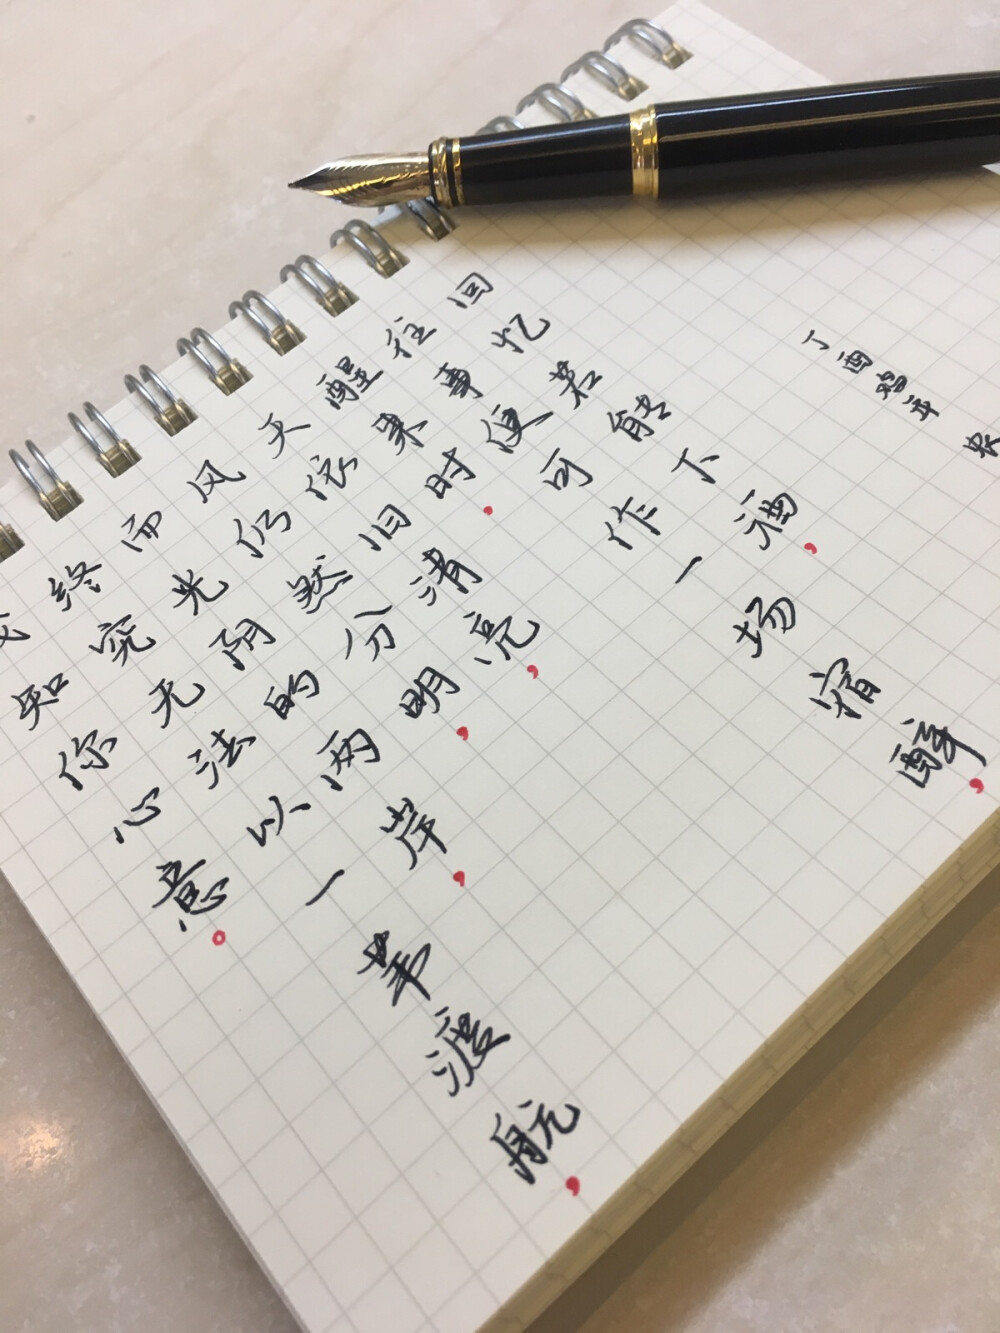 回忆若能下酒，
往事便可作一场宿醉，
醒来时，
天依旧清亮，
风仍然分明，
而光阴的两岸，
终究无法以一苇渡航，
我知你心意。
丁酉鸡年